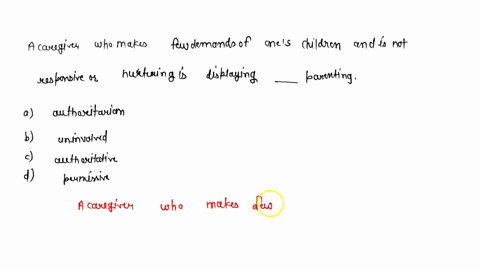 A caregiver who makes few demands of one's children and is not
responsive or nurturing is displaying ___ parenting.
a) authoritarian
b) uninvolved
c) authoritative
d) permissive
A caregiver who makes few